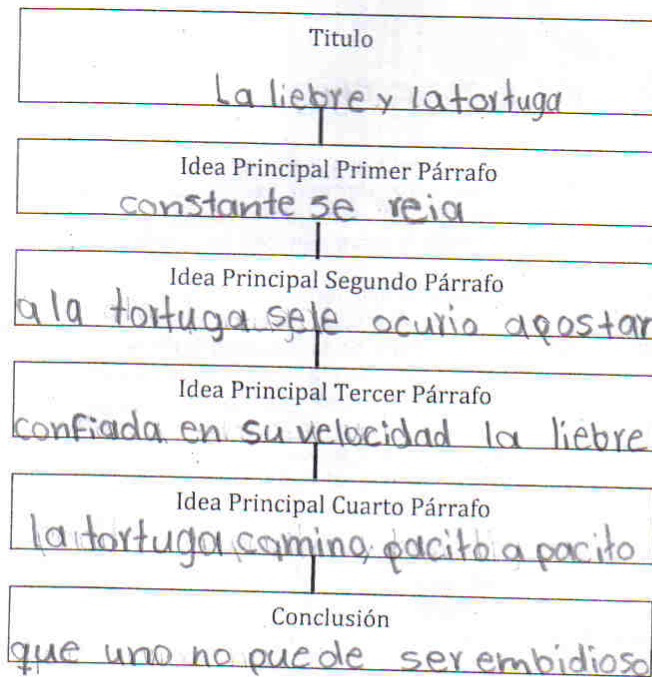 Titulo
La liebre y la tortuga
Idea Principal Primer Párrafo
constante se reia
Idea Principal Segundo Párrafo
a la tortuga sele ocurio apostar
Idea Principal Tercer Párrafo
confiada en su velocidad la liebre
Idea Principal Cuarto Párrafo
la tortuga camino pacito a pacito
Conclusión
que uno no puede ser embidioso